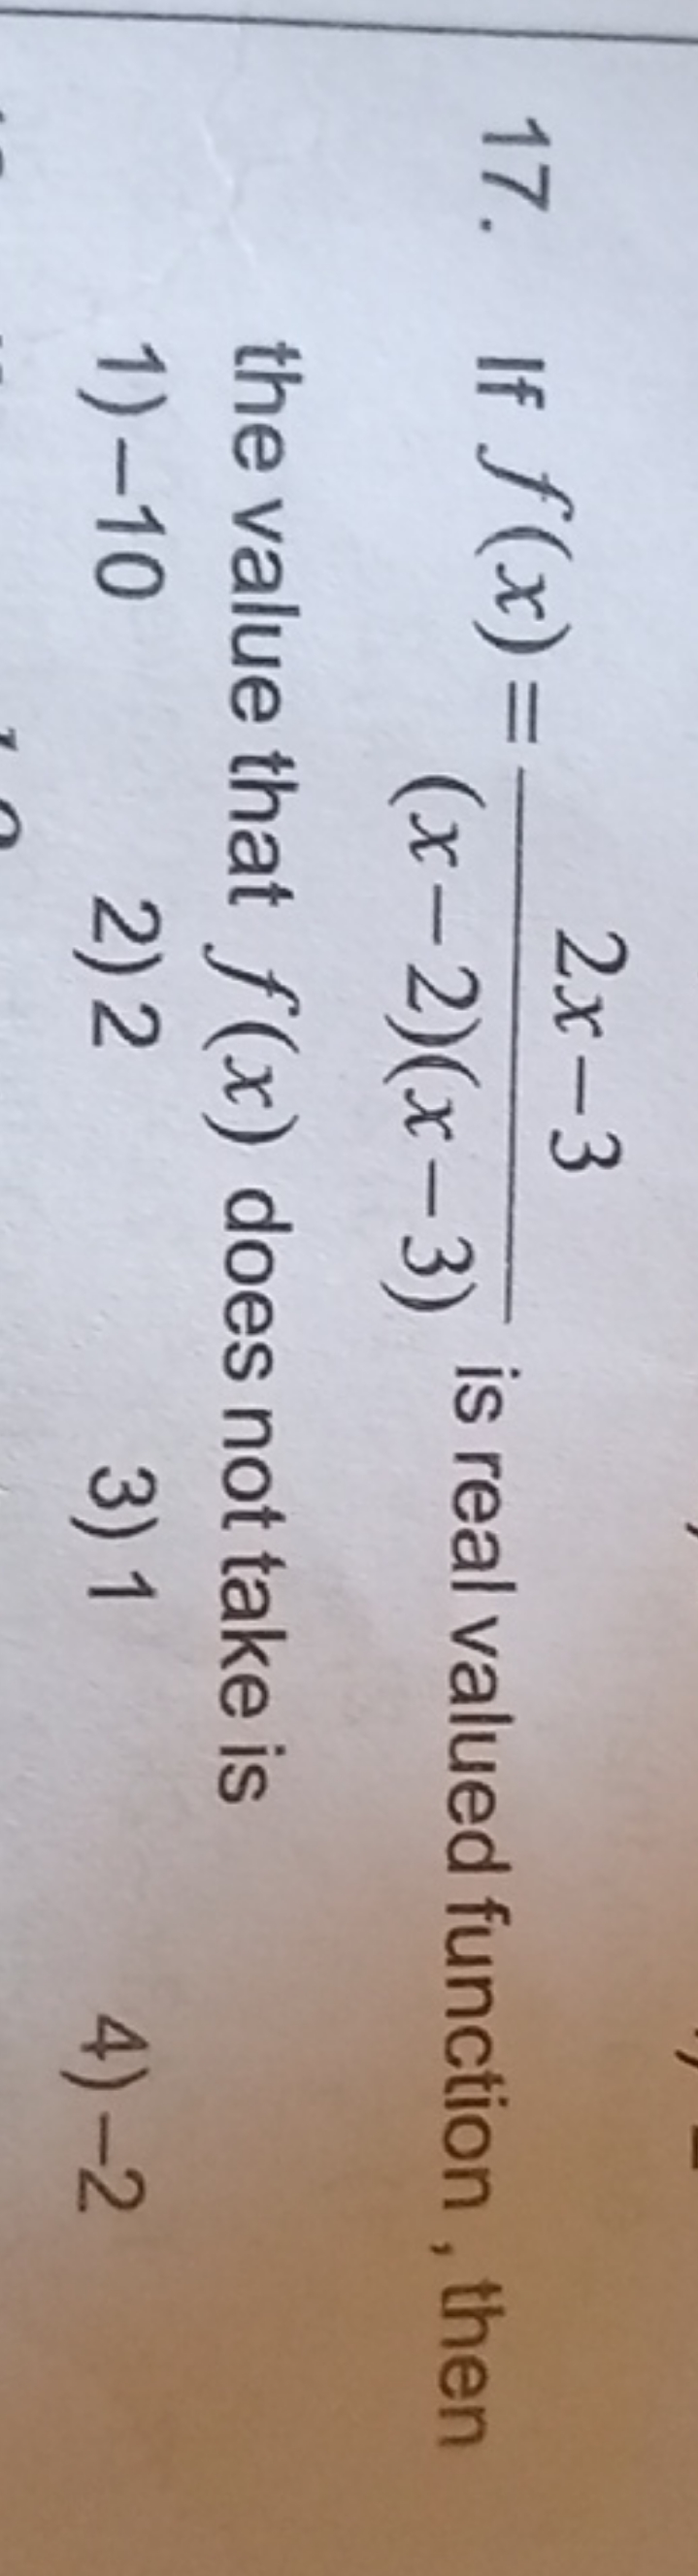 17. If f(x) = \frac{2x-3}{(x-2)(x-3)} is real valued function , then
the value that f(x) does not take is
1) –10 2) 2 3) 1 4) –2